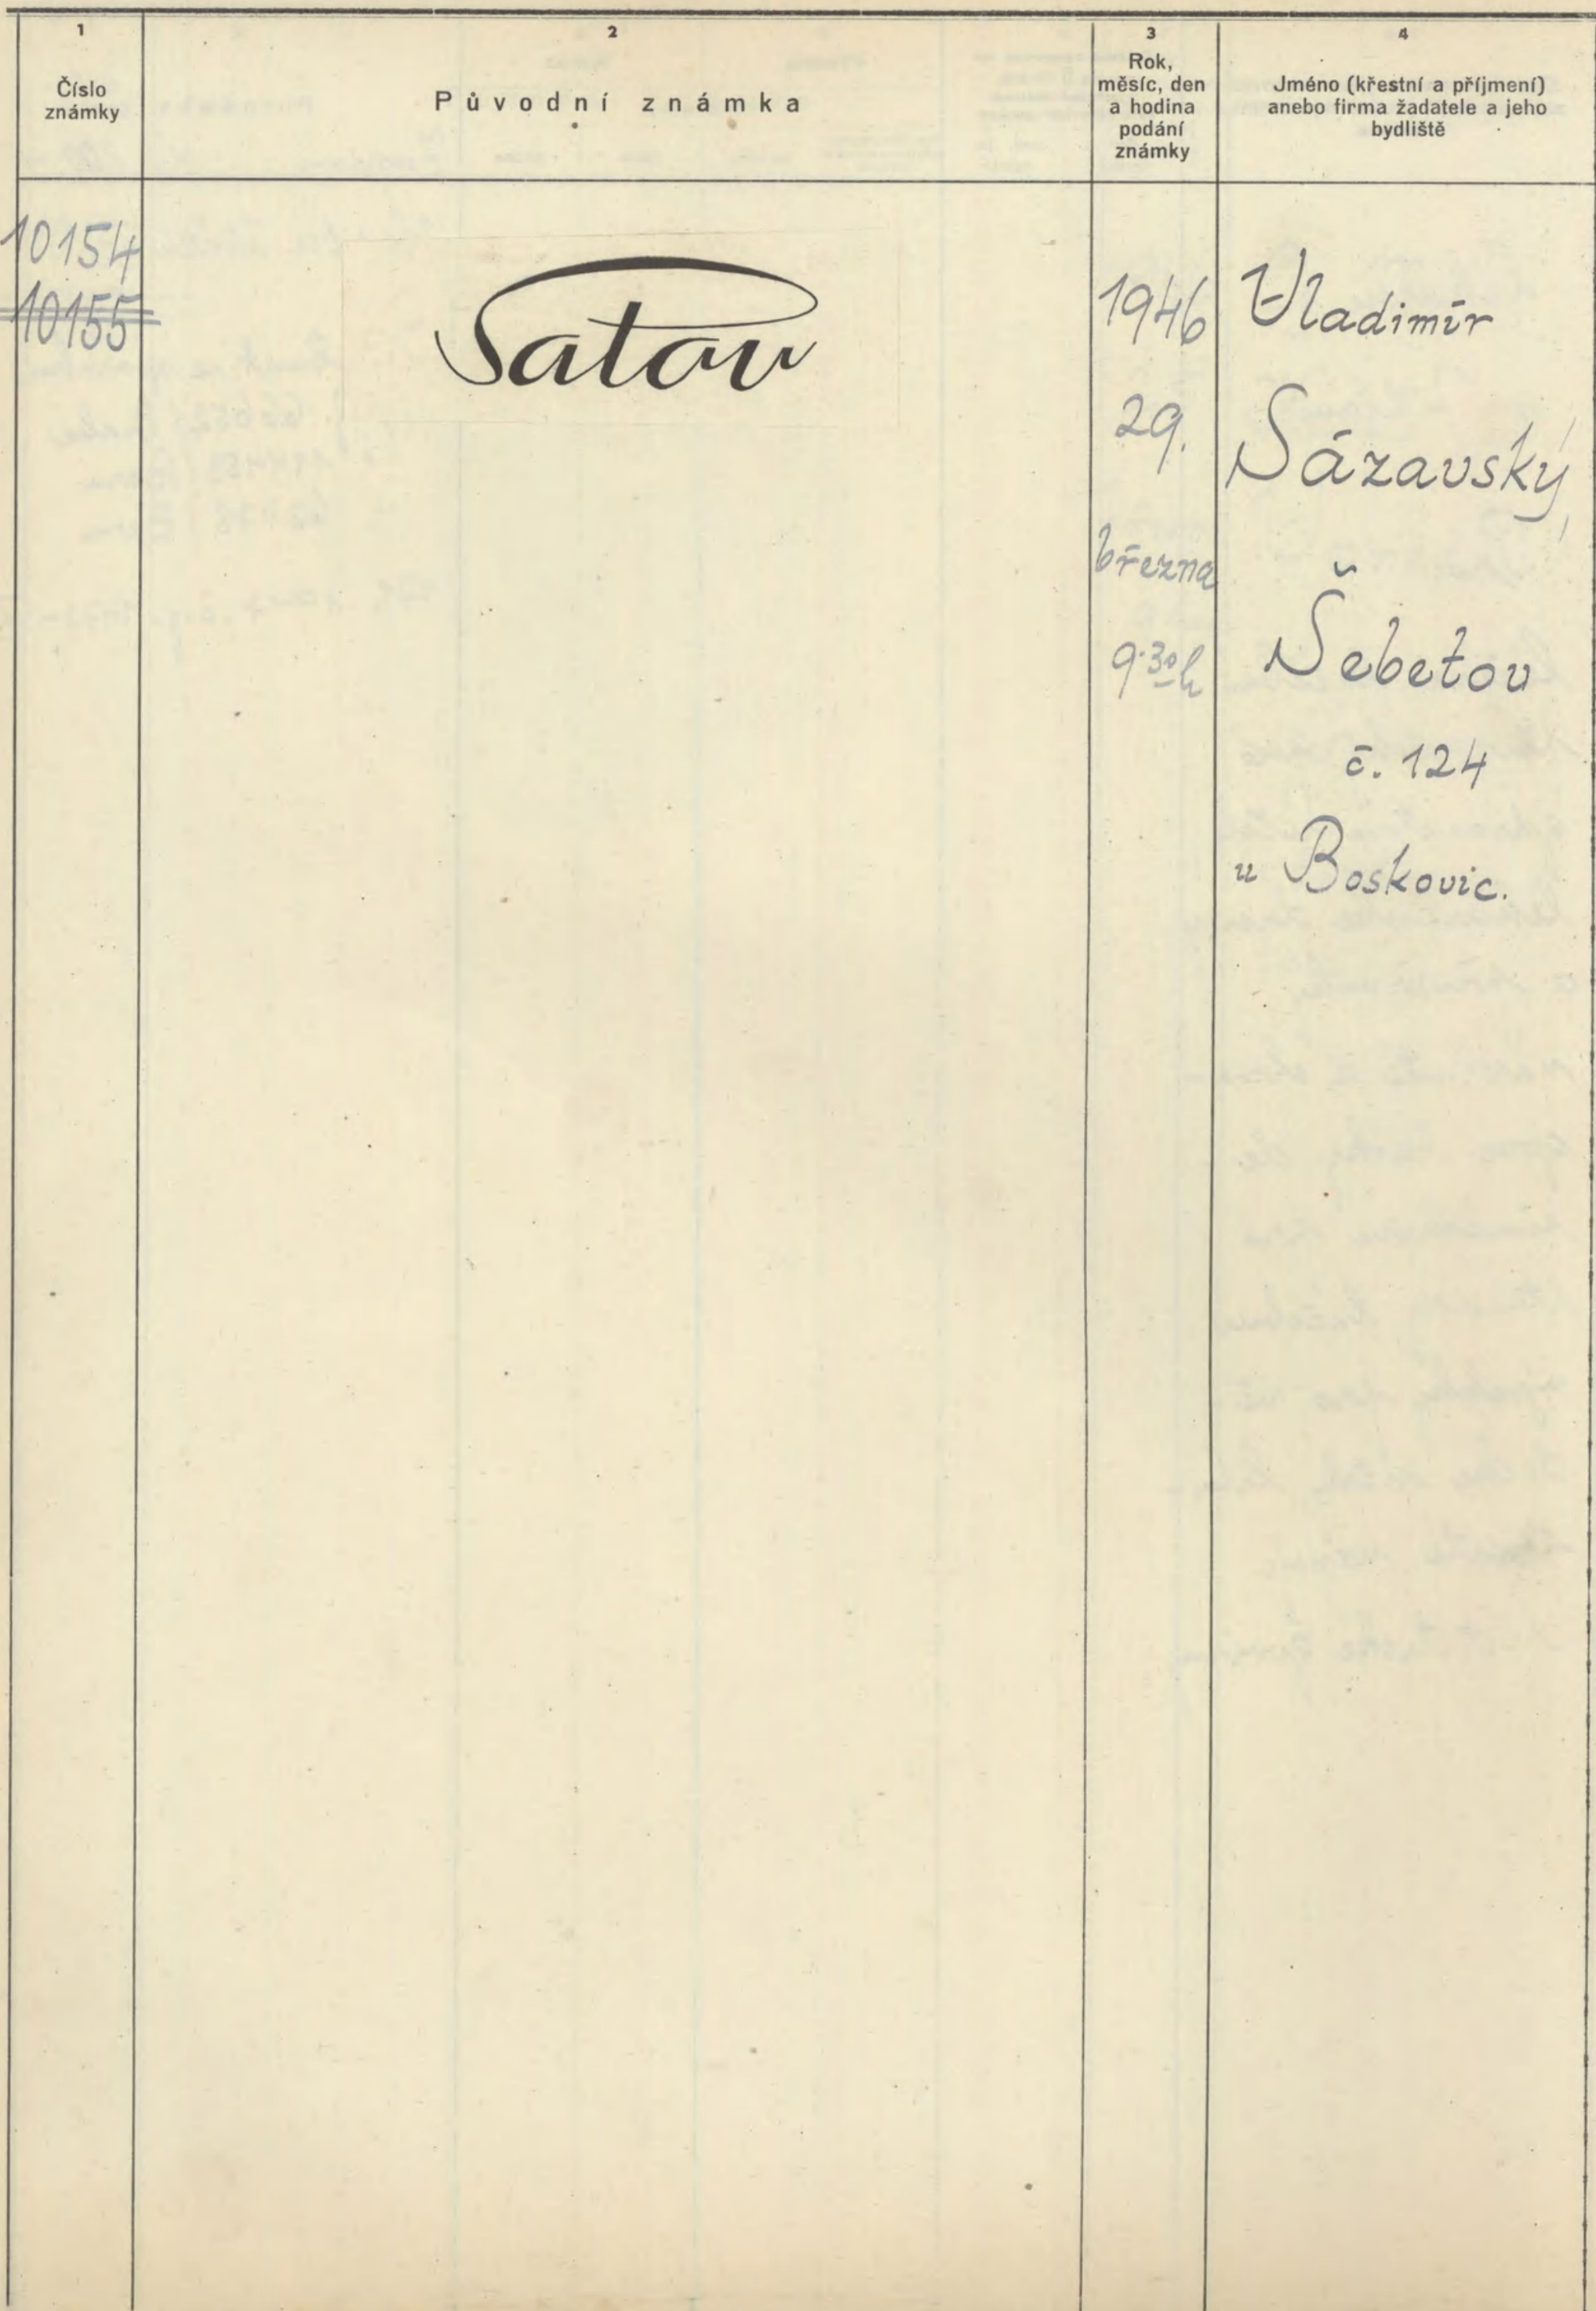 1
Číslo
známky
2
Původní známka
3
Rok,
měsíc, den
a hodina
podání
známky
4
Jméno (křestní a příjmení)
anebo firma žadatele a jeho
bydliště
10154
10155
Satav
1946
29.
března
9.30 h
Vladimír
Sázavský,
Šebetov
č. 124
u Boskovic.